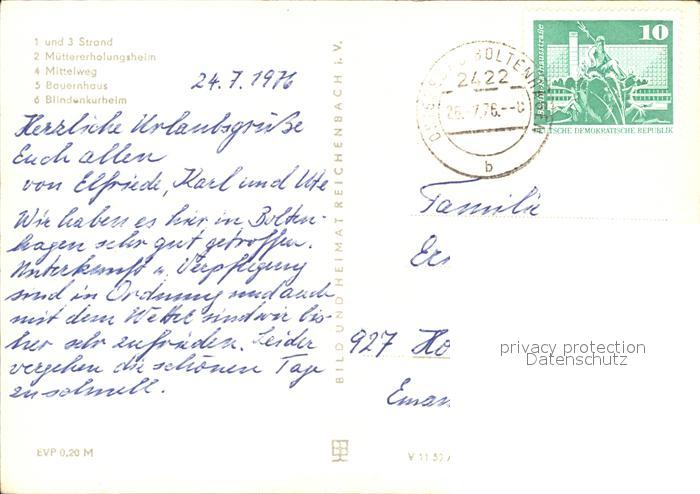 1 und 3 Strand
2 Müttererholungsheim
4 Mittelweg
5 Bauernhaus
6 Blindenkurheim
24.7.1976
Herzliche Urlaubsgrüße
Euch allen
von Elfriede, Karl und Ute
Wir haben es hier in Bolten-
hagen sehr gut getroffen.
Unterkunft u. Verpflegung
sind in Ordnung und auch
mit dem Wetter sind wir bis-
her sehr zufrieden. Leider
vergehen die schönen Tage
zu schnell.
EVP 0,20 M
BILD UND HEIMAT REICHENBACH I. V.
BOLTENHAGEN
2422
26.-7.76.--
b
10
DEUTSCHE DEMOKRATISCHE REPUBLIK
Familie
927 Ho
privacy protection
Datenschutz
V 11 50